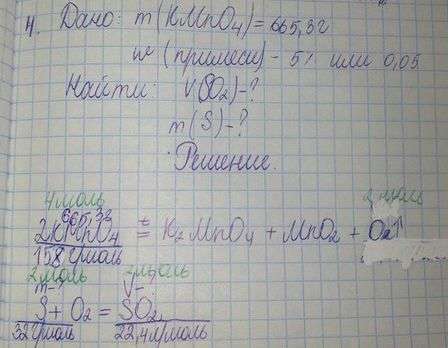 4. Дано: m(KMnO4)=665,3г
w(примеси) - 5% или 0,05.
Найти: V(SO2)-?
m(S)-?
Решение.
4моль 2 моль
665,3г
2KMnO4 t= K2MnO4 + MnO2 + O2↑
158г/моль
2моль 2моль
m-? V-
S + O2 = SO2
32г/моль 22,4л/моль